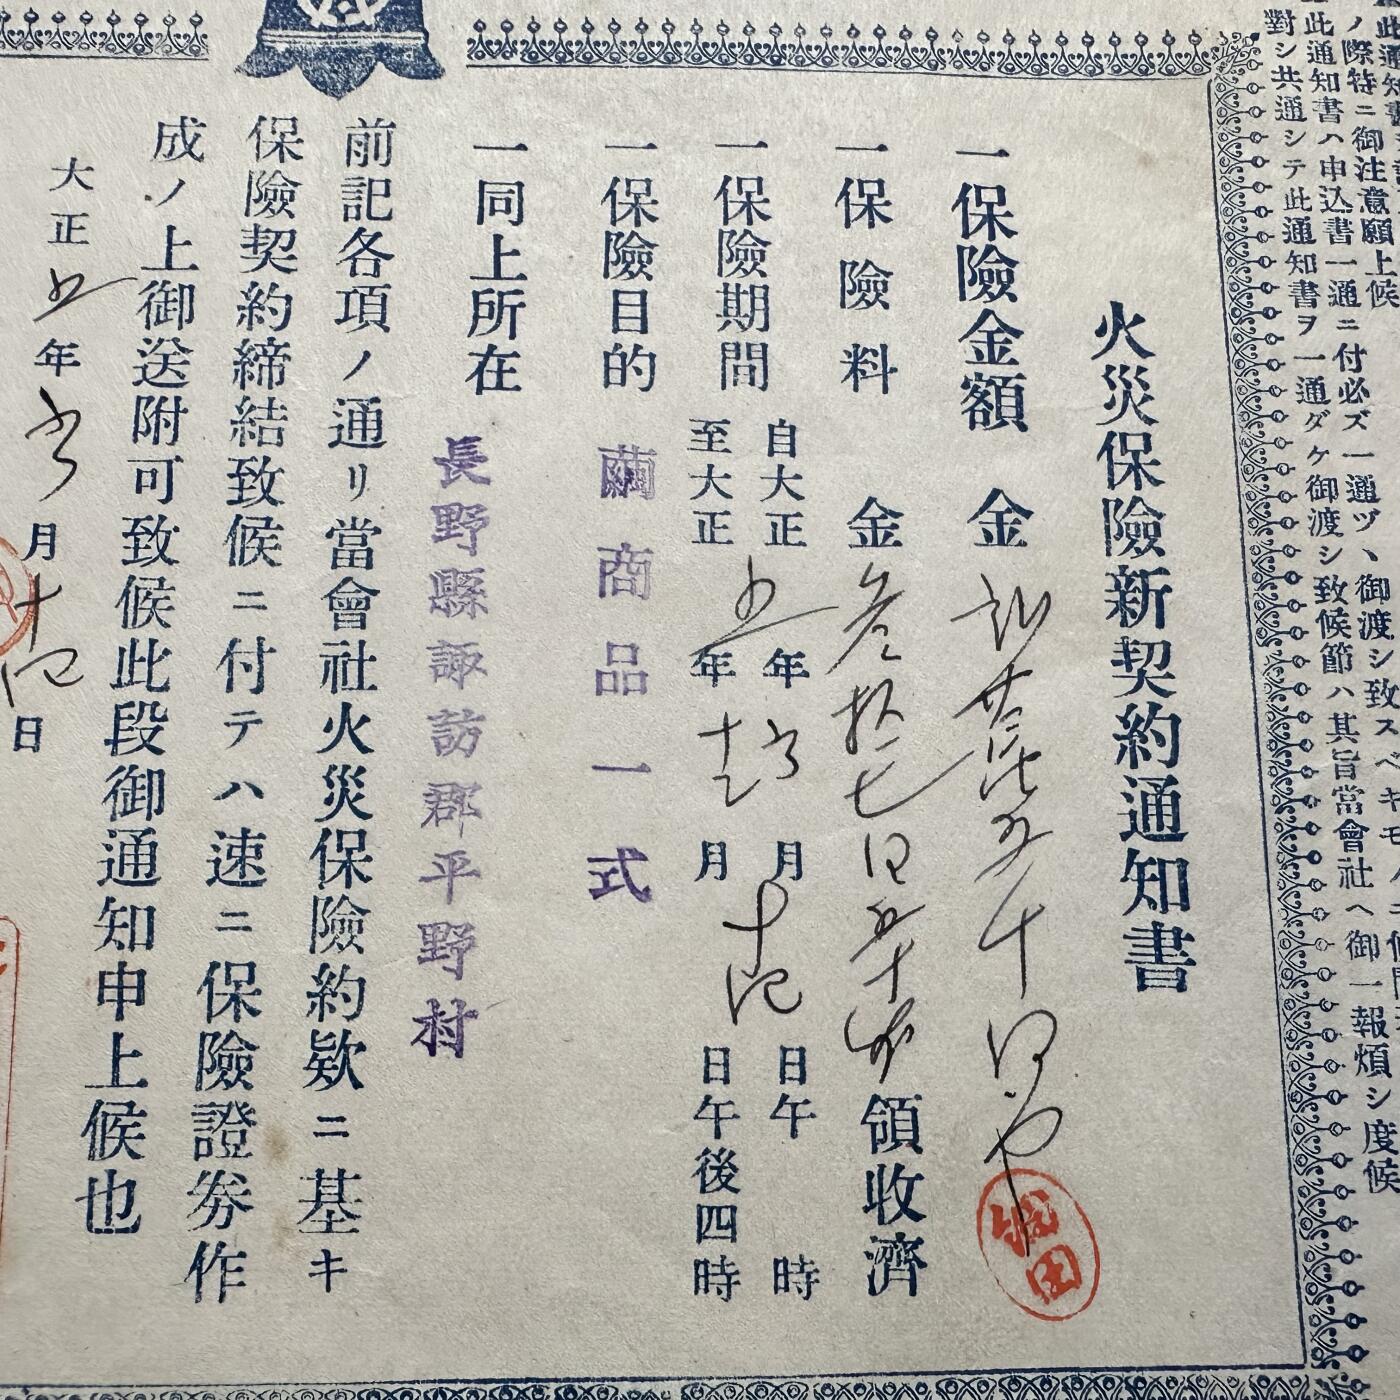 ノ際特ニ御注意願上候
此通知書ハ申込書一通ニ付必ズ一通ヅヽ御渡シ致スベキモノニ
對シ共通シテ此通知書ヲ一通ダケ御渡シ致候節ハ其旨當會社ヘ御一報煩シ度候
火災保險新契約通知書
一保險金額 金
一保險料 金參拾七円五十銭領收濟
一保險期間 自大正五年六月十四日午 時
至大正五年十弍月十四日午後四時
一保險目的 繭商品一式
一同上所在 長野縣諏訪郡平野村
前記各項ノ通リ當會社火災保險約欵ニ基キ
保險契約締結致候ニ付テハ速ニ保險證券作
成ノ上御送附可致候此段御通知申上候也
大正五年六月十四日